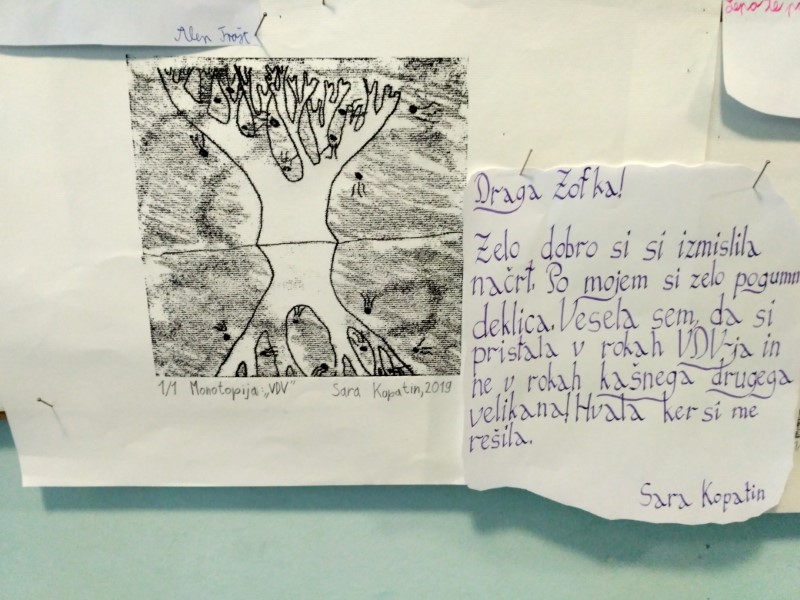 Alen
1/1 Monotopija „VDV" Sara Kopatin, 2019
Draga Zofka!
Zelo dobro si si izmislila
načrt. Po mojem si zelo pogumn
deklica. Vesela sem, da si
pristala v rokah VDV-ja in
ne v rokah kašnega drugega
velikana! Hvala ker si me
rešila.
Sara Kopatin